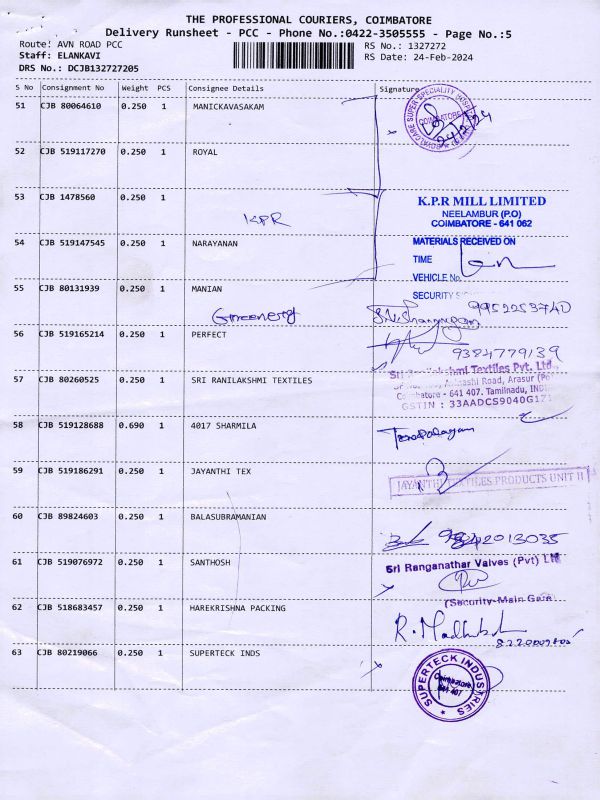 THE PROFESSIONAL COURIERS, COIMBATORE
Delivery Runsheet - PCC - Phone No.:0422-3505555 - Page No.:5
Route: AVN ROAD PCC
RS No.: 1327272
Staff: ELANKAVI
RS Date: 24-Feb-2024
DRS No.: DCJB132727205
S No Consignment No Weight PCS Consignee Details Signature
51 CJB 80064610 0.250 1 MANICKAVASAKAM
CARE SUPER SPECIALITY
COIMBATORE
24/2/24
52 CJB 519117270 0.250 1 ROYAL
53 CJB 1478560 0.250 1
KPR
K.P.R MILL LIMITED
NEELAMBUR (P.O)
COIMBATORE - 641 062
54 CJB 519147545 0.250 1 NARAYANAN
MATERIALS RECEIVED ON
TIME
VEHICLE No.
55 CJB 80131939 0.250 1 MANIAN
SECURITY
9952253740
56 CJB 519165214 0.250 1 PERFECT
9384779139
57 CJB 80260525 0.250 1 SRI RANILAKSHMI TEXTILES
Sri Ranilakshmi Textiles Pvt. Ltd.
Avinashi Road, Arasur
Coimbatore - 641 407. Tamilnadu,
GSTIN : 33AADCS9040G1
58 CJB 519128688 0.690 1 4017 SHARMILA
59 CJB 519186291 0.250 1 JAYANTHI TEX
JAYANTHI TEXTILES PRODUCTS UNIT II
60 CJB 89824603 0.250 1 BALASUBRAMANIAN
2013035
61 CJB 519076972 0.250 1 SANTHOSH
Sri Ranganathar Valves (Pvt) Ltd
(Security-Main Gate)
62 CJB 518683457 0.250 1 HAREKRISHNA PACKING
63 CJB 80219066 0.250 1 SUPERTECK INDS
SUPERTECK INDUSTRIES
Coimbatore
641 407